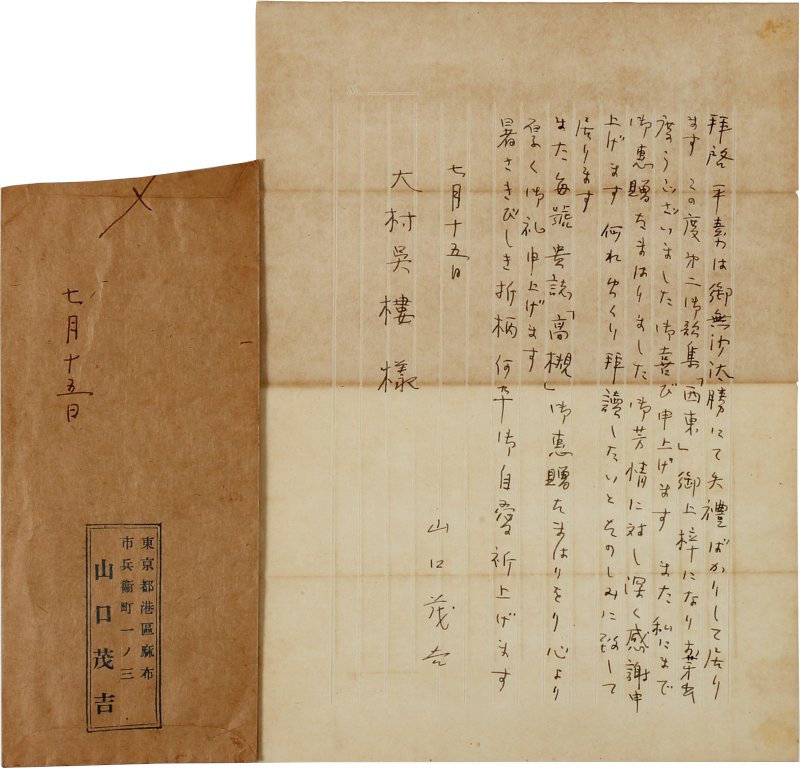 拝啓 平素は御無沙汰勝にて失禮ばかりして居り
ます この度第二御歌集「西東」御上梓になり
度うございました 御喜び申上げます また私にまで
御恵贈たまはりました御芳情に対し深く感謝申
上げます 何れゆつくり拝讀したいとたのしみに致して
居ります
また毎號貴誌「高槻」御恵贈たまはりをり心より
厚く御礼申上げます
暑さきびしき折柄何卒御自愛祈上げます
七月十五日
山口茂吉
大村呉樓様
七月十五日
東京都港區麻布
市兵衞町一ノ三
山口茂吉